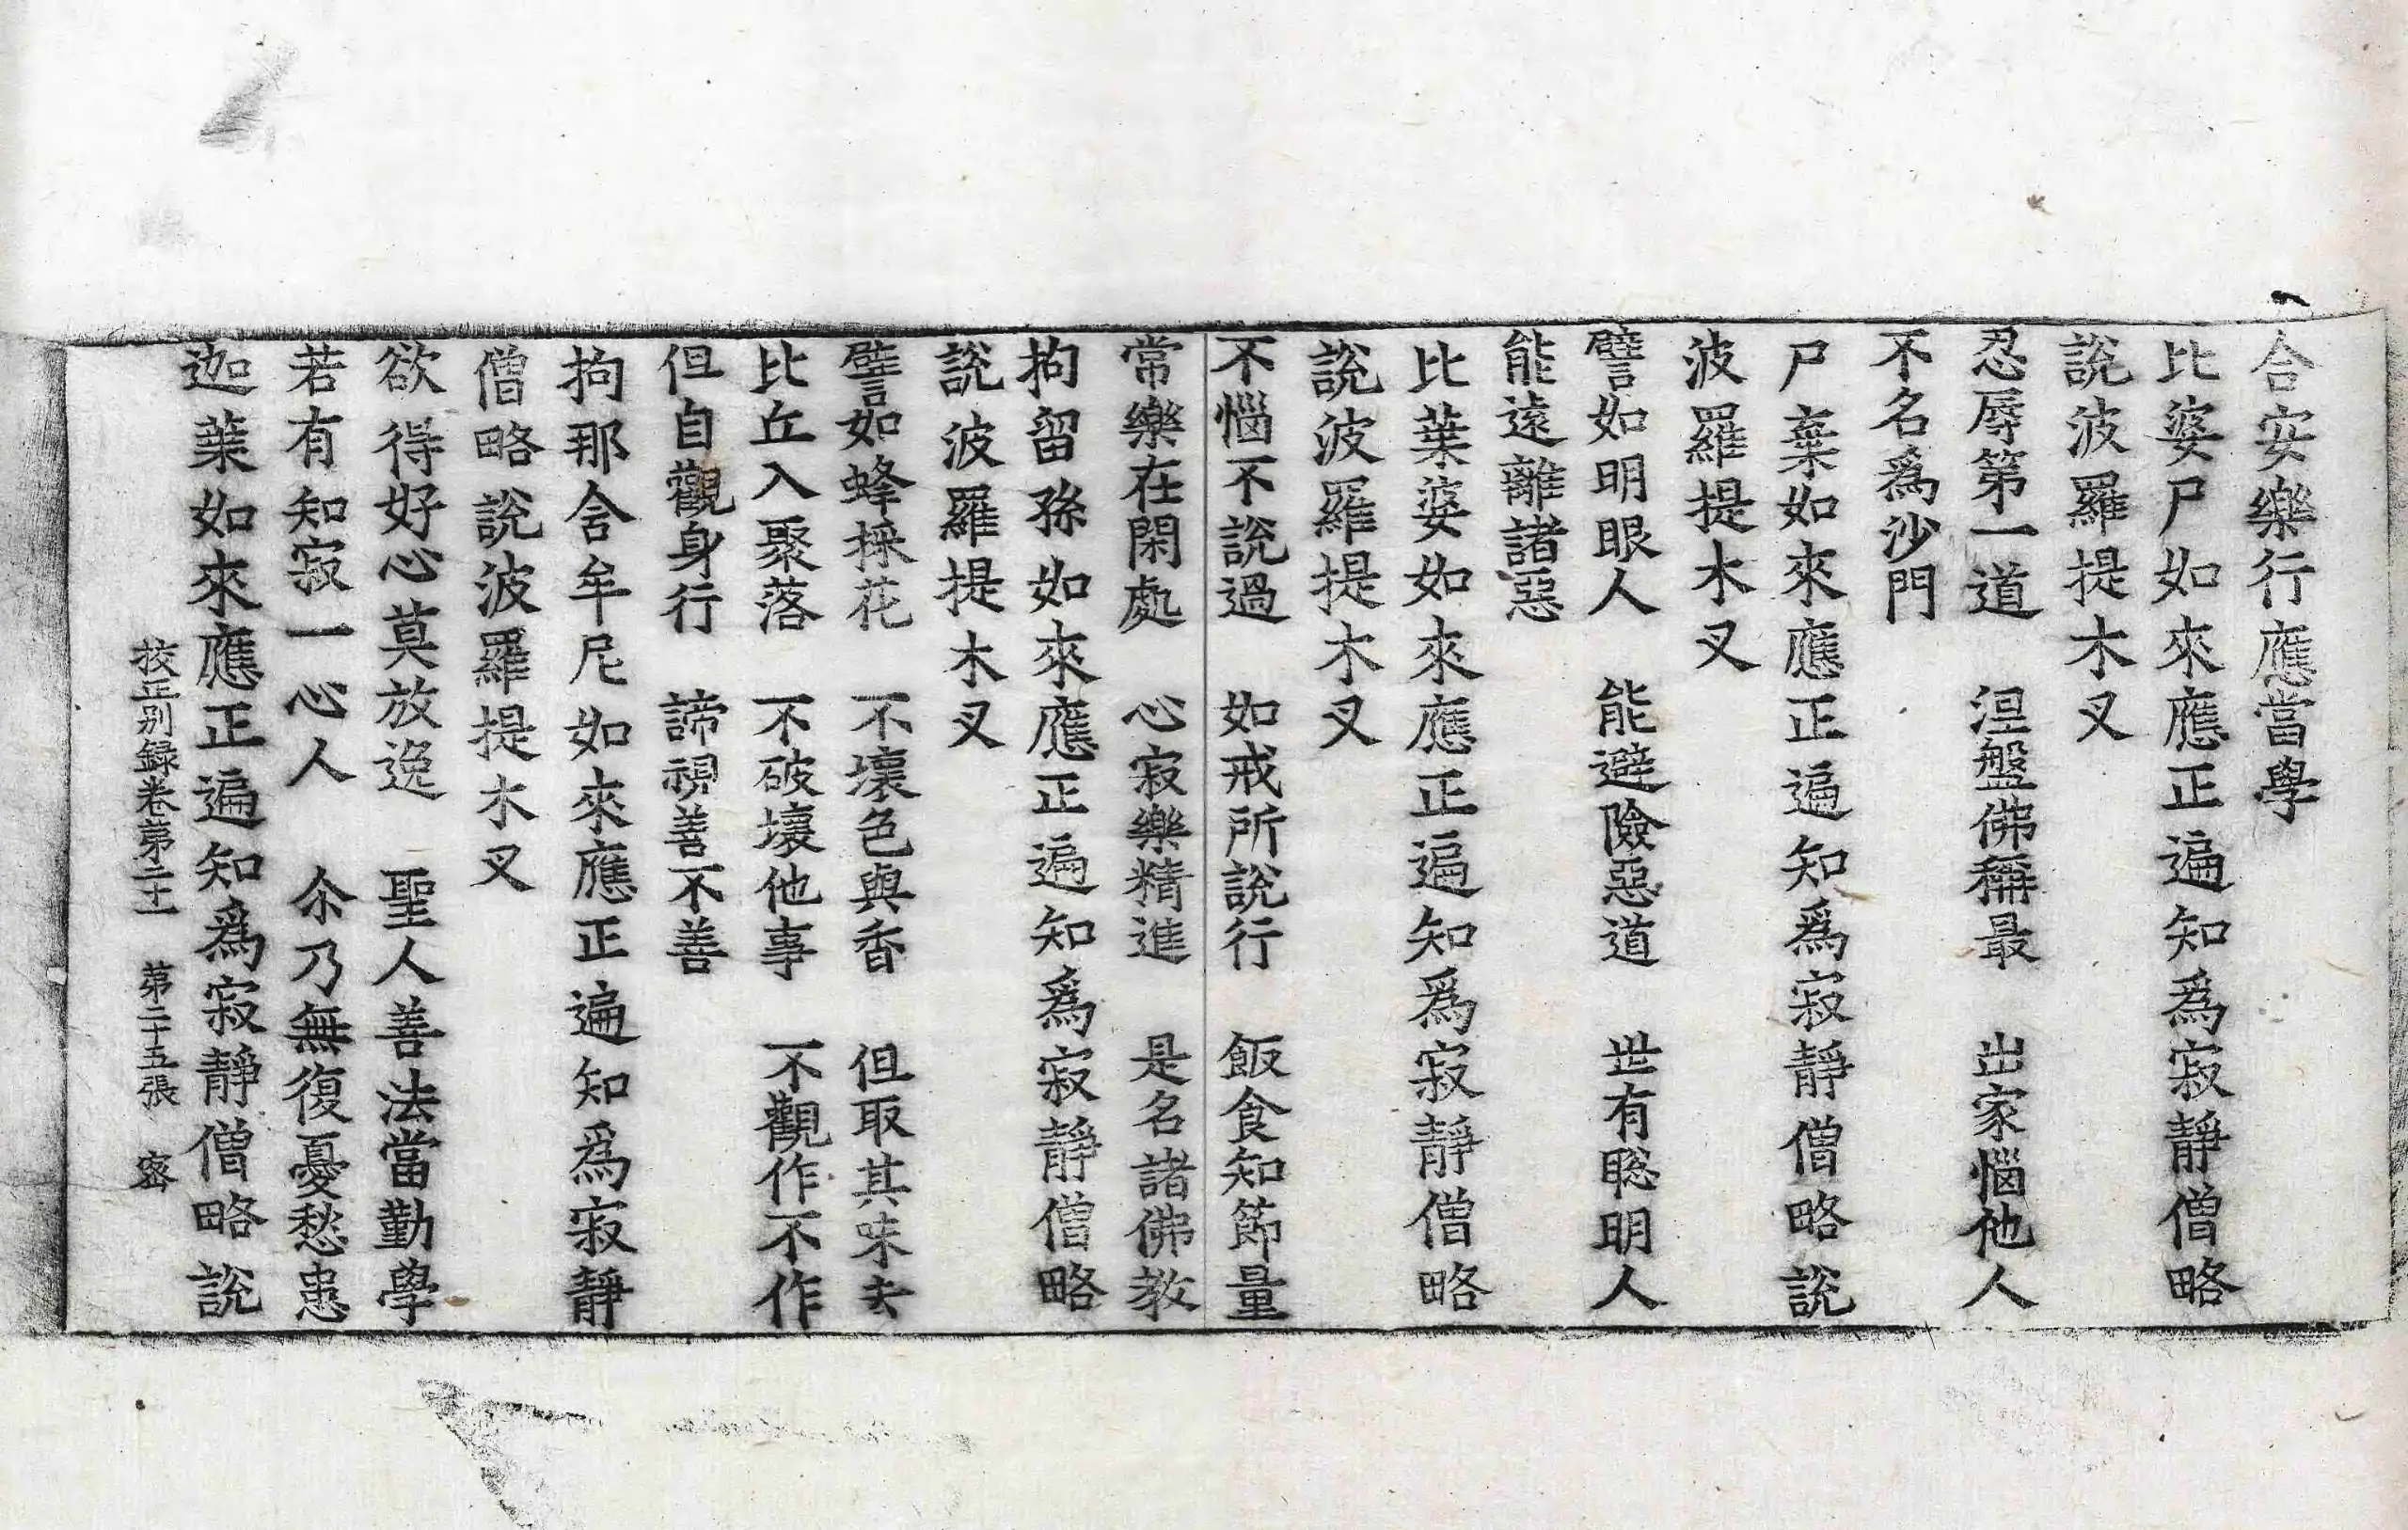 合安樂行應當學
比婆尸如來應正遍知爲寂靜僧略
說波羅提木叉
忍辱第一道　涅盤佛稱最　出家惱他人
不名爲沙門
尸棄如來應正遍知爲寂靜僧略說
波羅提木叉
譬如明眼人　能避險惡道　世有聡明人
能遠離諸惡
比葉婆如來應正遍知爲寂靜僧略
說波羅提木叉
不惱不說過　如戒所說行　飯食知節量
常樂在閑處　心寂樂精進　是名諸佛教
拘留孫如來應正遍知爲寂靜僧略
說波羅提木叉
譬如蜂採花　不壞色與香　但取其味去
比丘入聚落　不破壞他事　不觀作不作
但自觀身行　諦視善不善
拘那含牟尼如來應正遍知爲寂靜
僧略說波羅提木叉
欲得好心莫放逸　聖人善法當勤學
若有知寂一心人　尒乃無復憂愁患
迦葉如來應正遍知爲寂靜僧略說
挍正别録卷第二十一　第二十五張　密